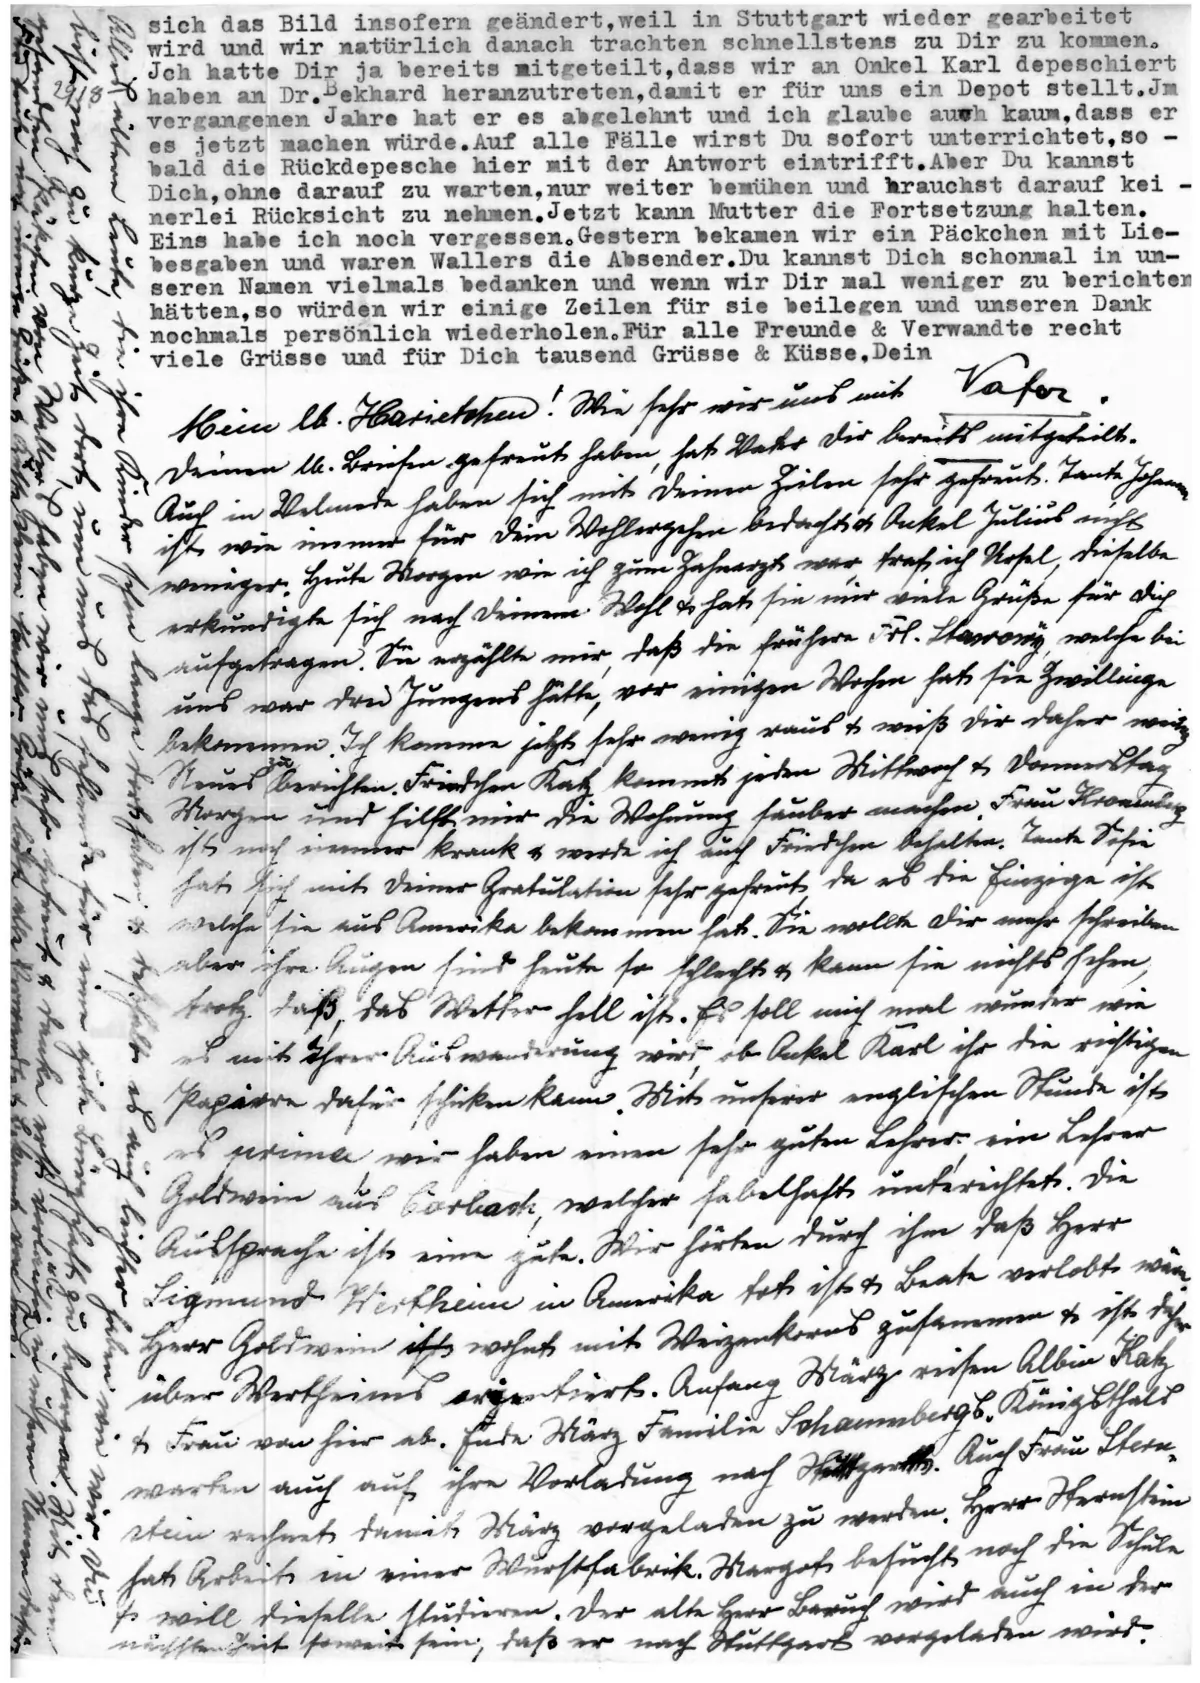 sich das Bild insofern geändert,weil in Stuttgart wieder gearbeitet
wird und wir natürlich danach trachten schnellstens zu Dir zu kommen.
Jch hatte Dir ja bereits mitgeteilt,dass wir an Onkel Karl depeschiert
haben an Dr.Bekhard heranzutreten,damit er für uns ein Depot stellt.Jm
vergangenen Jahre hat er es abgelehnt und ich glaube auch kaum,dass er
es jetzt machen würde.Auf alle Fälle wirst Du sofort unterrichtet,so -
bald die Rückdepesche hier mit der Antwort eintrifft.Aber Du kannst
Dich,ohne darauf zu warten,nur weiter bemühen und brauchst darauf kei -
nerlei Rücksicht zu nehmen.Jetzt kann Mutter die Fortsetzung halten.
Eins habe ich noch vergessen.Gestern bekamen wir ein Päckchen mit Lie-
besgaben und waren Wallers die Absender.Du kannst Dich schonmal in un-
seren Namen vielmals bedanken und wenn wir Dir mal weniger zu berichten
hätten,so würden wir einige Zeilen für sie beilegen und unseren Dank
nochmals persönlich wiederholen.Für alle Freunde & Verwandte recht
viele Grüsse und für Dich tausend Grüsse & Küsse,Dein
Vater.
Mein lb. Harietchen! Wie sehr wir uns mit
Deinen lb. Briefen gefreut haben, hat Vater Dir bereits mitgeteilt.
Auch in Velmede haben sich mit Deinen Zeilen sehr gefreut. Tante
ist wie immer für Dein Wohlergehen bedacht & Onkel Julius nicht
weniger. Heute Morgen wie ich zum Zahnarzt war, traf ich Ursel, dieselbe
erkundigte sich nach Deinem Wohl & hat sie mir viele Grüße für Dich
aufgetragen. Sie erzählte mir, daß die frühere Frl. welche bei
uns war drei Jungens hätte, vor einigen Wochen hat sie Zwillinge
bekommen. Ich komme jetzt sehr wenig raus & weiß Dir daher wenig
Neues zu berichten. Friedchen Katz kommt jeden Mittwoch & Donnerstag
Morgen und hilft mir die Wohnung sauber machen. Frau
ist noch immer krank & werde ich auch Friedchen behalten. Tante Sofie
hat sich mit Deiner Gratulation sehr gefreut, da es die Einzige ist
welche sie aus Amerika bekommen hat. Sie wollte Dir mehr schreiben
aber ihre Augen sind heute so schlecht & kann sie nichts sehen,
trotz daß, das Wetter hell ist. Es soll mich mal wunder wie
es mit Ihrer Auswanderung wird, ob Onkel Karl ihr die richtigen
Papiere dafür schicken kann. Mit unserer englischen Stunde ist
es prima, wir haben einen sehr guten Lehrer, ein Lehrer
Goldwein aus Corbach, welcher fabelhaft unterichtet. Die
Aussprache ist eine gute. Wir hörten durch ihm daß Herr
Sigmund Wertheim in Amerika tot ist & Beate verlobt wäre.
Herr Goldwein ist wohnt mit Weizenkorns zusammen & ist daher
über Wertheims orientiert. Anfang März reisen Albin Katz
& Frau von hier ab. Ende März Familie Schaumbergs. Königsthals
warten auch auf ihre Vorladung nach Stuttgart. Auch Frau Stern-
stein rechnet damit März vorgeladen zu werden. Herr Sternstein
hat Arbeit in einer Wurstfabrik. Margot besucht noch die Schule
& will dieselbe studieren. Der alte Herr Baruch wird auch in der
nächsten Zeit soweit sein, daß er nach Stuttgart vorgeladen wird.
Alles ältere Leute, die ihre Kinder schon lange dort haben, & deshalb es auch leichter haben wie wir. Du
bist noch zu kurze Zeit dort, um uns das fehlende für eine gute Bürgschaft zu besorgen. Mit dem
Päckchen von Wallers haben wir uns sehr gefreut & danke erst vorläufig in unserem Namen dafür
2918